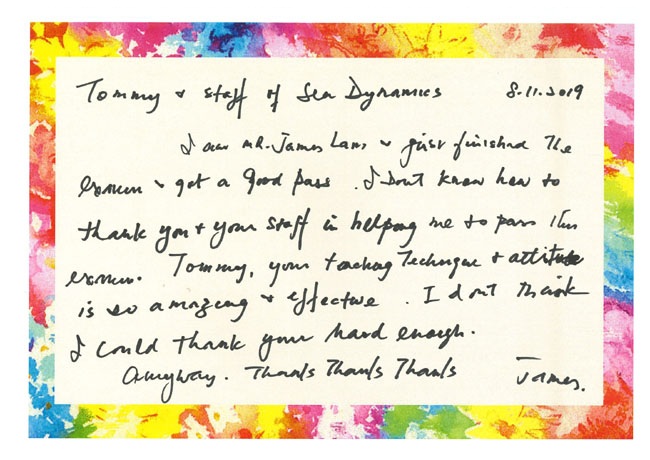 Tommy & staff of Sea Dynamics 8.11.2019
I am Mr. James Lam & just finished the
exam & got a good pass. I Dont know how to
thank you & your staff in helping me to pass this
exam. Tommy, your teaching Technique & attitude
is so amazing & effective. I dont think
I could thank you hard enough.
Anyway. Thanks Thanks Thanks James.